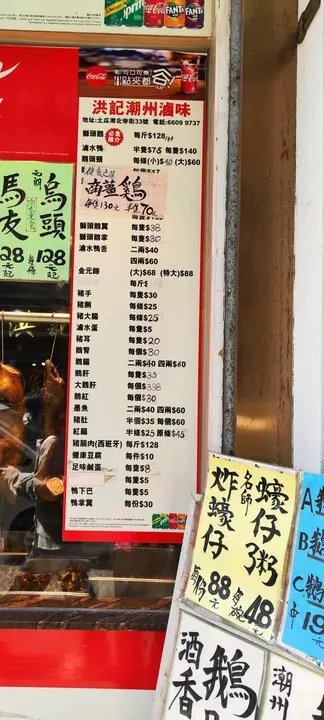 Sprite
Coca-Cola
FANTA
FANTA
Coca-Cola
洪記潮州滷味
地址:土瓜灣北帝街33號 電話:6609 9737
獅頭鵝 必食推介 每斤$128
滷水鴨 半隻$75 每隻$140
鵝頭頸 每條(小)$60 (大)$60
南薑鷄
每隻130元 半隻70元
獅頭鵝翼 每隻$38
獅頭鵝掌 每隻$30
滷水鴨舌 二兩$40
四兩$60
金元蹄 (大)$68 (特大)$88
每斤$
豬手 每隻$30
豬脷 每條$25
豬大腸 每條$25
滷水蛋 每隻$5
豬耳 每隻$20
鵝腎 每個$30
鵝腸 二兩$40 四兩$60
鵝肝 每隻$35
大鵝肝 每個$338
鵝紅 每個$30
墨魚 二兩$40 四兩$60
豬肚 半個$35 每個$60
紅腸 半條$25 原條$45
豬腩肉(西班牙) 每斤$128
健康豆腐 每件$10
足味鹹蛋 每隻$8
每隻$5
鴨下巴 每隻$5
鴨掌翼 每份$30
烏頭
128元起
馬友
128元起
名師蠔仔粥
每碗48元
炸蠔仔
88元
A
B
C
酒香鵝
潮州